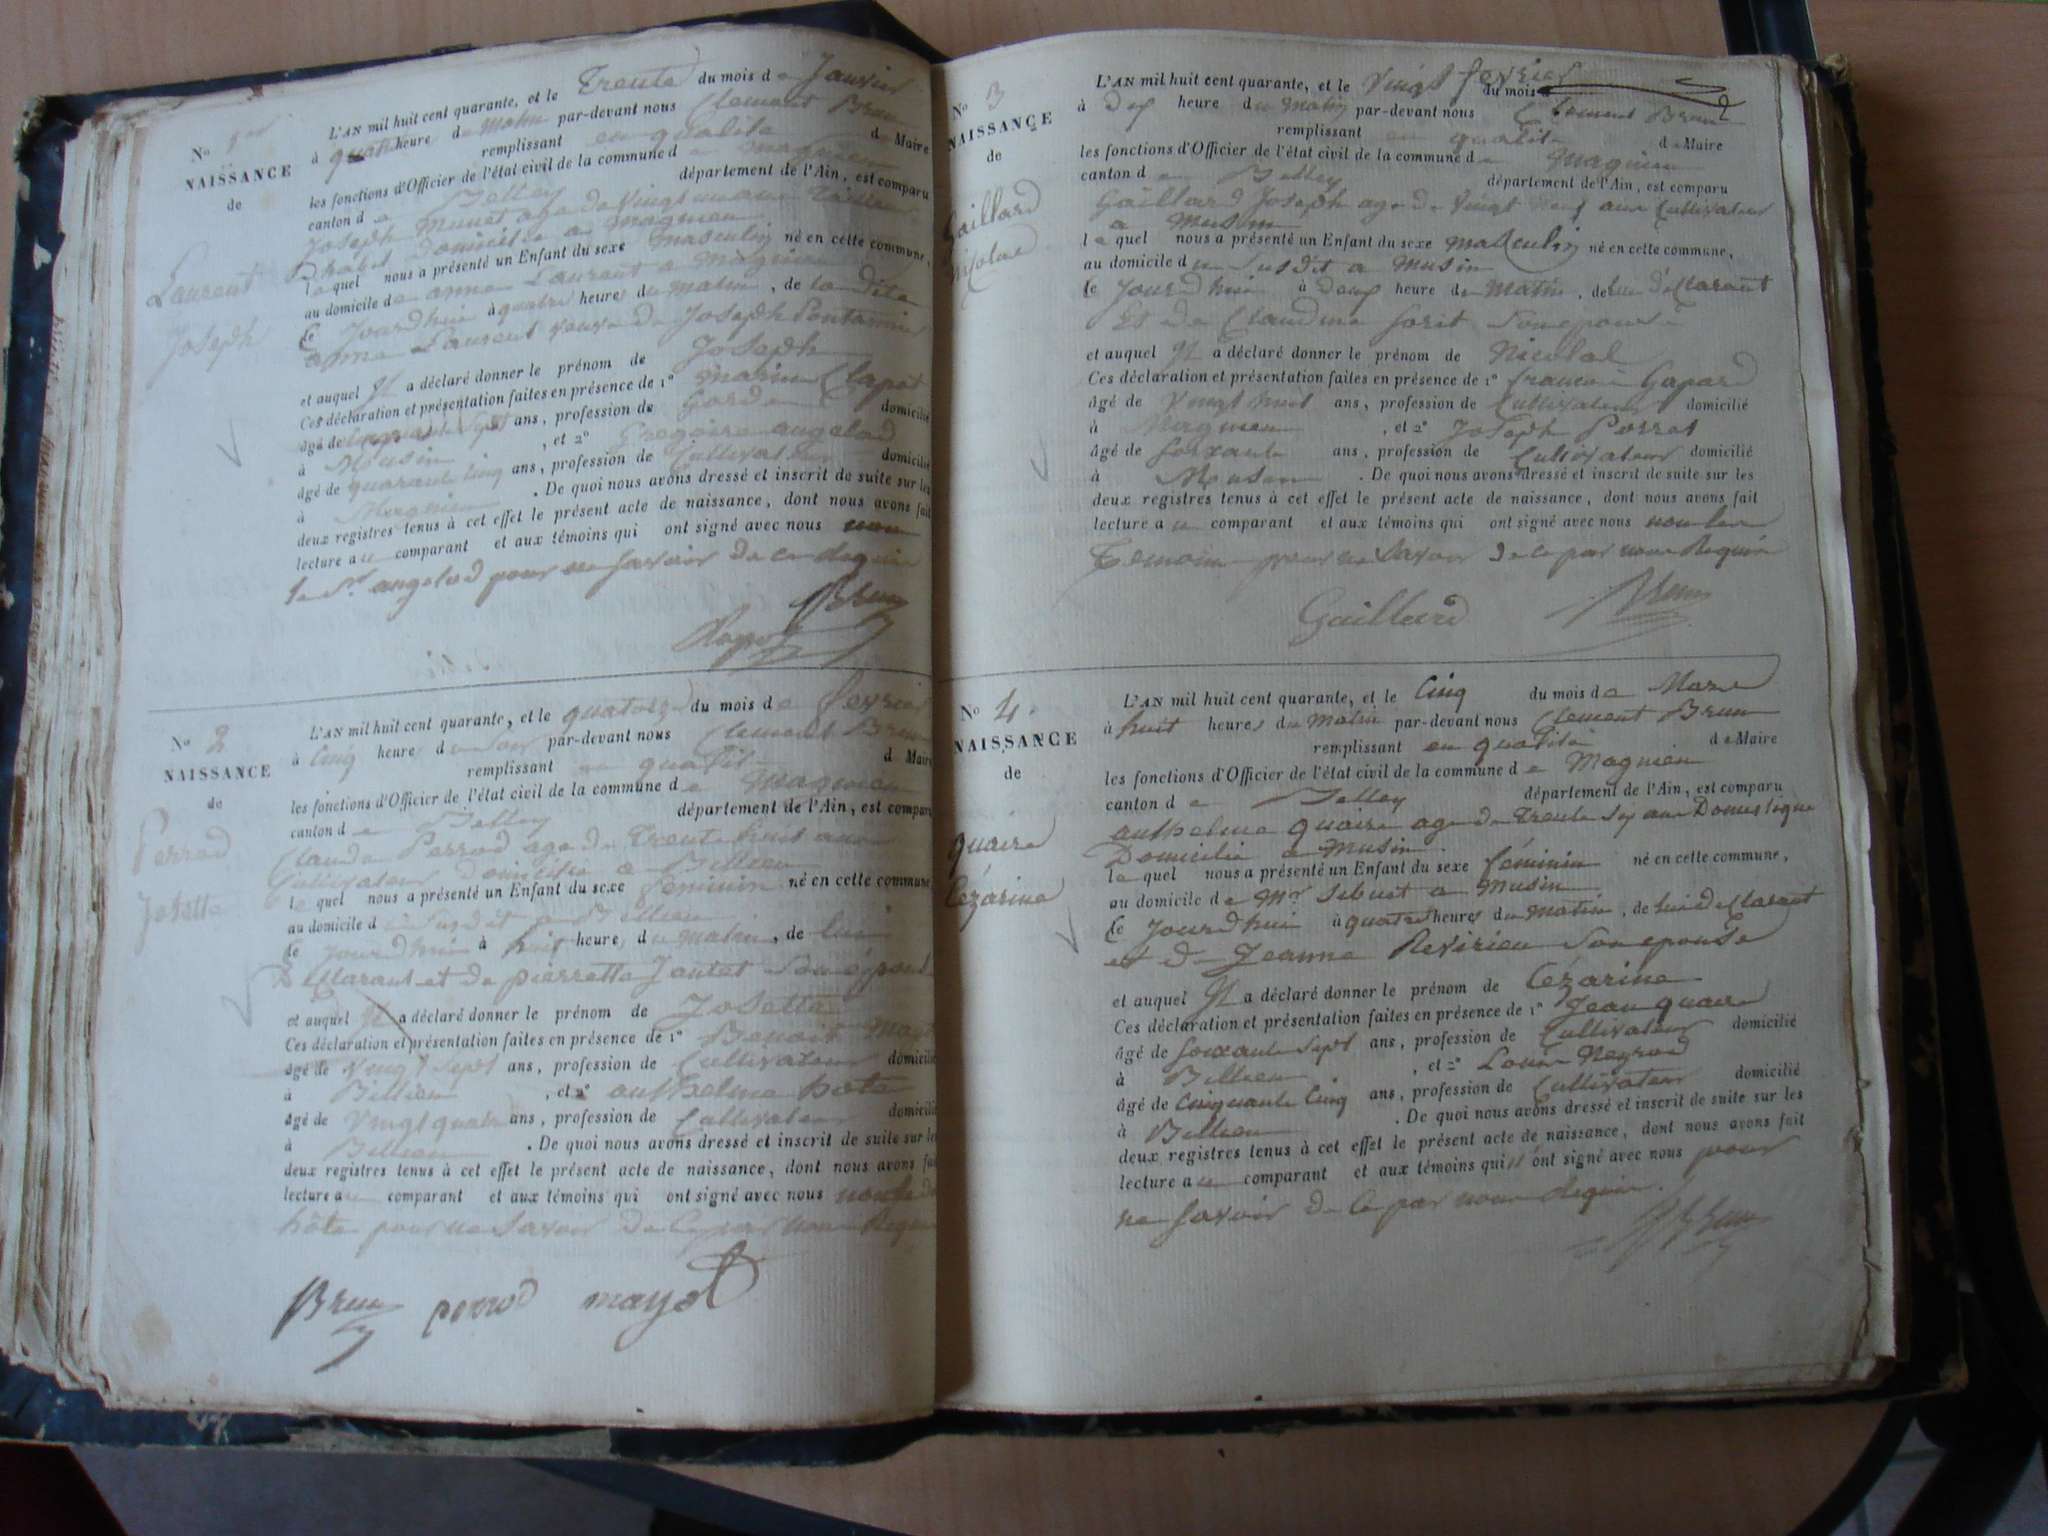 N° 1er
NAISSANCE
de
Laurent
Joseph
L'AN mil huit cent quarante, et le Trente du mois de Janvier
à quatre heure du Matin par-devant nous Clement Brun
remplissant en qualite de Maire
les fonctions d'Officier de l'état civil de la commune de Magnieu
canton de Belley département de l'Ain, est comparu
Joseph Munet age de Vingt un ans
domicilie a Magnieu
lequel nous a présenté un Enfant du sexe masculin né en cette commune,
au domicile de anne Laurent a Magnieu
le Jourdhui à quatre heures du matin, de la dite
anne Laurent veuve de Joseph
et auquel Il a déclaré donner le prénom de Joseph
Ces déclaration et présentation faites en présence de 1°
âgé de sept ans, profession de domicilié
à Musin, et 2° Gregoire angelod
âgé de quarante cinq ans, profession de Cultivateur domicilié
à Magnieu. De quoi nous avons dressé et inscrit de suite sur les
deux registres tenus à cet effet le présent acte de naissance, dont nous avons fait
lecture au comparant et aux témoins qui ont signé avec nous non
le Sr angelod pour ne savoir de ce requis
Brun
N° 2
NAISSANCE
de
Perrod
Josette
L'AN mil huit cent quarante, et le quatorze du mois de fevrier
à Cinq heures du soir par-devant nous Clement Brun
remplissant en qualite de Maire
les fonctions d'Officier de l'état civil de la commune de Magnieu
canton de Belley département de l'Ain, est comparu
Claude Perrod age de Trente huit ans
Cultivateur Domicilie a Billieu
lequel nous a présenté un Enfant du sexe féminin né en cette commune
au domicile du Susdit a Billieu
le Jourdhui à huit heures du matin, de lui
Déclarant et de pierrette Jantet Son épouse
et auquel Il a déclaré donner le prénom de Josette
Ces déclaration et présentation faites en présence de 1° Benoit Mayot
âgé de Vingt Sept ans, profession de Cultivateur domicilié
à Billieu, et 2° anthelme hôte
âgé de Vingt quatre ans, profession de Cultivateur domicilié
à Billieu. De quoi nous avons dressé et inscrit de suite sur les
deux registres tenus à cet effet le présent acte de naissance, dont nous avons fait
lecture au comparant et aux témoins qui ont signé avec nous non le dit
hôte pour ne Savoir de Ce par nous Requis
Brun perrod mayot
2
N° 3
NAISSANCE
de
Gaillard
Nicolas
L'AN mil huit cent quarante, et le Vingt fevrier du mois d
à Dix heure du Matin par-devant nous Clement Brun
remplissant en qualite de Maire
les fonctions d'Officier de l'état civil de la commune de Magnieu
canton de Belley département de l'Ain, est comparu
Gaillard Joseph age de Vingt neuf ans Cultivateur
a Musin
lequel nous a présenté un Enfant du sexe masculin né en cette commune,
au domicile du Susdit a Musin
le Jourdhui à deux heure du Matin, de lui déclarant
Et de Claudine forit Son epouse
et auquel Il a déclaré donner le prénom de Nicolas
Ces déclaration et présentation faites en présence de 1° francois Gapard
âgé de Vingt huit ans, profession de Cultivateur domicilié
à Magnieu, et 2° Joseph Perret
âgé de Soixante ans, profession de Cultivateur domicilié
à Musin. De quoi nous avons dressé et inscrit de suite sur les
deux registres tenus à cet effet le présent acte de naissance, dont nous avons fait
lecture au comparant et aux témoins qui ont signé avec nous non les
Temoins pour ne Savoir de ce par nous Requis
Gaillard Brun
N° 4.
NAISSANCE
de
Quaire
Cézarine
L'AN mil huit cent quarante, et le Cinq du mois de Mars
à huit heures du Matin par-devant nous Clement Brun
remplissant en qualité de Maire
les fonctions d'Officier de l'état civil de la commune de Magnieu
canton de Belley département de l'Ain, est comparu
anthelme Quaire age de Trente Six ans Domestique
Domicilié a Musin
lequel nous a présenté un Enfant du sexe féminin né en cette commune,
au domicile de Mr Sibuet a Musin
le Jourdhui à quatre heures du matin, de lui déclarant
et de Jeanne Revirieu Son epouse
et auquel Il a déclaré donner le prénom de Cézarine
Ces déclaration et présentation faites en présence de 1° Jean Quaire
âgé de Soixante Sept ans, profession de Cultivateur domicilié
à Billieu, et 2° Louis Neyrod
âgé de Cinquante Cinq ans, profession de Cultivateur domicilié
à Billieu. De quoi nous avons dressé et inscrit de suite sur les
deux registres tenus à cet effet le présent acte de naissance, dont nous avons fait
lecture au comparant et aux témoins qui n'ont signé avec nous pour
ne Savoir de Ce par nous Requis.
Brun